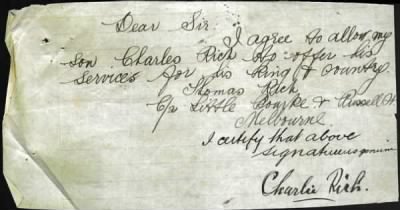 Dear Sir.
I agree to allow my
son Charles Rich to offer his
services for his King & Country.
Thomas Rich
C/o Little Bourke & Russell St
Melbourne.
I certify that above
signature is genuine
Charlie Rich.